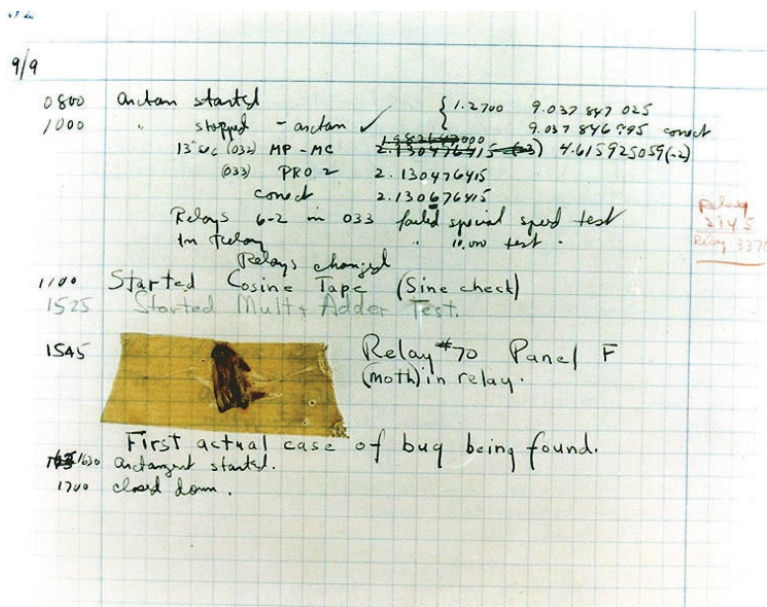 9/9
0800 arctan started { 1.2700 9.037 847 025
1000 " stopped - arctan ✓ 9.037 846 995 conect
13"uc (032) MP - MC 2.130476415 4.615925059(-2)
(033) PRO 2 2.130476415
conect 2.130676415
Relays 6-2 in 033 failed special speed test
In Relay " 10,000 test .
Relays changed
Relay
2145
Relay 3370
1100 Started Cosine Tape (Sine check)
1525 Started Mult + Adder Test.
1545 Relay #70 Panel F
(moth) in relay.
First actual case of bug being found.
1630 arctangent started.
1700 closed down.